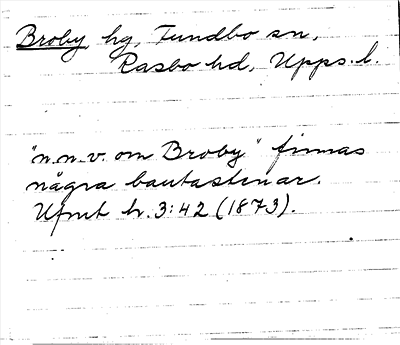 Broby hg, Tundbo sn,
Rasbo hd, Upps. l.
"n.n.v. om Broby" finnas
några bautastenar.
Ufmt h. 3:42 (1873).